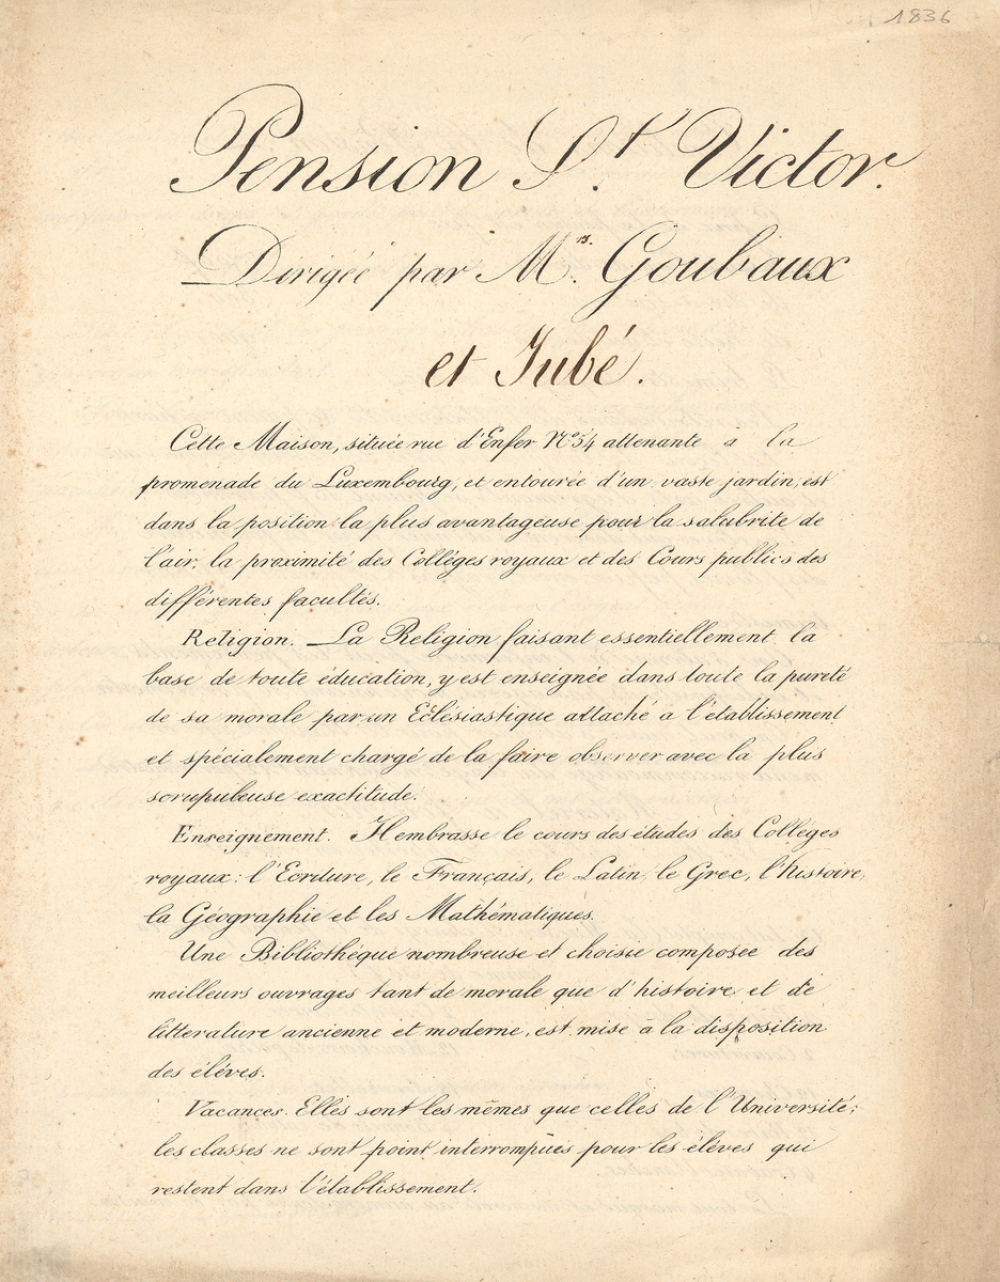 1836
Pension St. Victor.
Dirigée par Mrs. Goubaux
et Jubé.
Cette Maison, située rue d'Enfer N°54 attenante à la
promenade du Luxembourg, et entourée d'un vaste jardin, est
dans la position la plus avantageuse pour la salubrité de
l'air, la proximité des Colléges royaux et des Cours publics des
différentes facultés.
Religion. La Religion faisant essentiellement la
base de toute éducation, y est enseignée dans toute la pureté
de sa morale par un Eclésiastique attaché a l'établissement
et spécialement chargé de la faire observer avec la plus
scrupuleuse exactitude.
Enseignement. Il embrasse le cours des études des Colléges
royaux: l'Ecriture, le Français, le Latin, le Grec, l'histoire,
la Géographie et les Mathématiques.
Une Bibliothéque nombreuse et choisie composée des
meilleurs ouvrages tant de morale que d'histoire et de
littérature ancienne et moderne, est mise à la disposition
des éléves.
Vacances. Elles sont les mêmes que celles de l'Université;
les classes ne sont point interrompues pour les éléves qui
restent dans l'établissement.